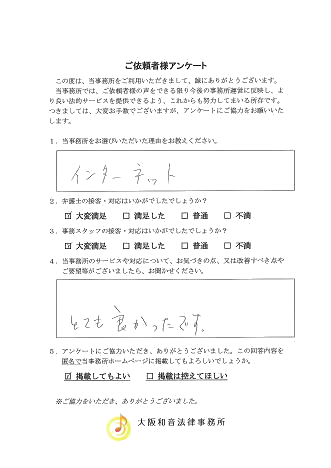 ご依頼者様アンケート
この度は、当事務所をご利用いただきまして、誠にありがとうございます。
当事務所では、ご依頼者様の声をできる限り今後の事務所運営に反映し、よ
り良い法的サービスを提供できるよう、これからも努力してまいる所存です。
つきましては、大変お手数でございますが、アンケートにご協力をお願いいた
します。
1．当事務所をお選びいただいた理由をお教えください。
インターネット
2．弁護士の接客・対応はいかがでしたでしょうか？
☑ 大変満足 ☐ 満足した ☐ 普通 ☐ 不満
3．事務スタッフの接客・対応はいかがでしたでしょうか？
☑ 大変満足 ☐ 満足した ☐ 普通 ☐ 不満
4．当事務所のサービスや対応について、お気づきの点、又は改善すべき点や
ご要望等がございましたら、お聞かせください。
とても良かったです。
5．アンケートにご協力いただき、ありがとうございました。この回答内容を
匿名で当事務所ホームページに掲載してもよろしいでしょうか。
☑ 掲載してもよい ☐ 掲載は控えてほしい
※ご協力をいただき、ありがとうございました。
大阪和音法律事務所